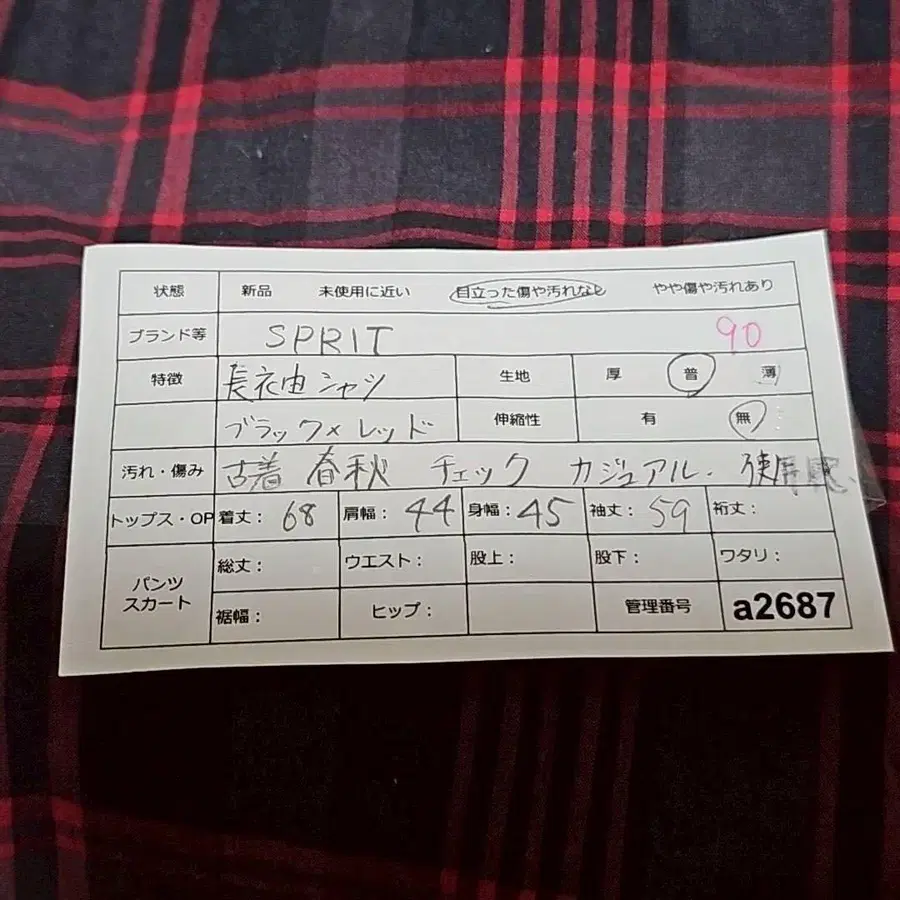 状態 新品 未使用に近い 目立った傷や汚れなし やや傷や汚れあり
ブランド等 SPRIT 90
特徴 長衣由シャツ 生地 厚 普 薄
ブラック×レッド 伸縮性 有 無
汚れ・傷み 古着 春秋 チェック カジュアル. 使用感
トップス・OP 着丈: 68 肩幅: 44 身幅: 45 袖丈: 59 裄丈:
パンツ スカート 総丈: ウエスト: 股上: 股下: ワタリ:
裾幅: ヒップ: 管理番号 a2687